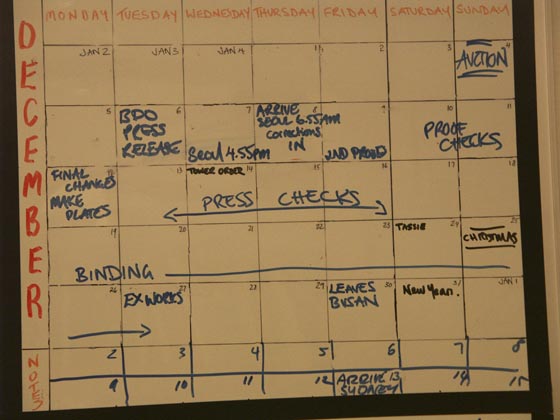 DECEMBER
MONDAY TUESDAY WEDNESDAY THURSDAY FRIDAY SATURDAY SUNDAY
JAN 2 JAN 3 JAN 4 1 2 3 4
AUCTION
5 6 7 8 9 10 11
BDO
PRESS
RELEASE
Seoul 4.55pm
ARRIVE
SEOUL 6.55AM
corrections
IN
2ND PROOFS
PROOF
CHECKS
12 13 14 15 16 17 18
FINAL
CHANGES
MAKE
PLATES
TOWER ORDER
PRESS CHECKS
19 20 21 22 23 24 25
TASSIE
CHRISTMAS
BINDING
26 27 28 29 30 31 JAN 1
EX WORKS
LEAVES
BUSAN
New Year.
NOTES
2 3 4 5 6 7 8
9 10 11 12 13 14 15
ARRIVE
SYDNEY